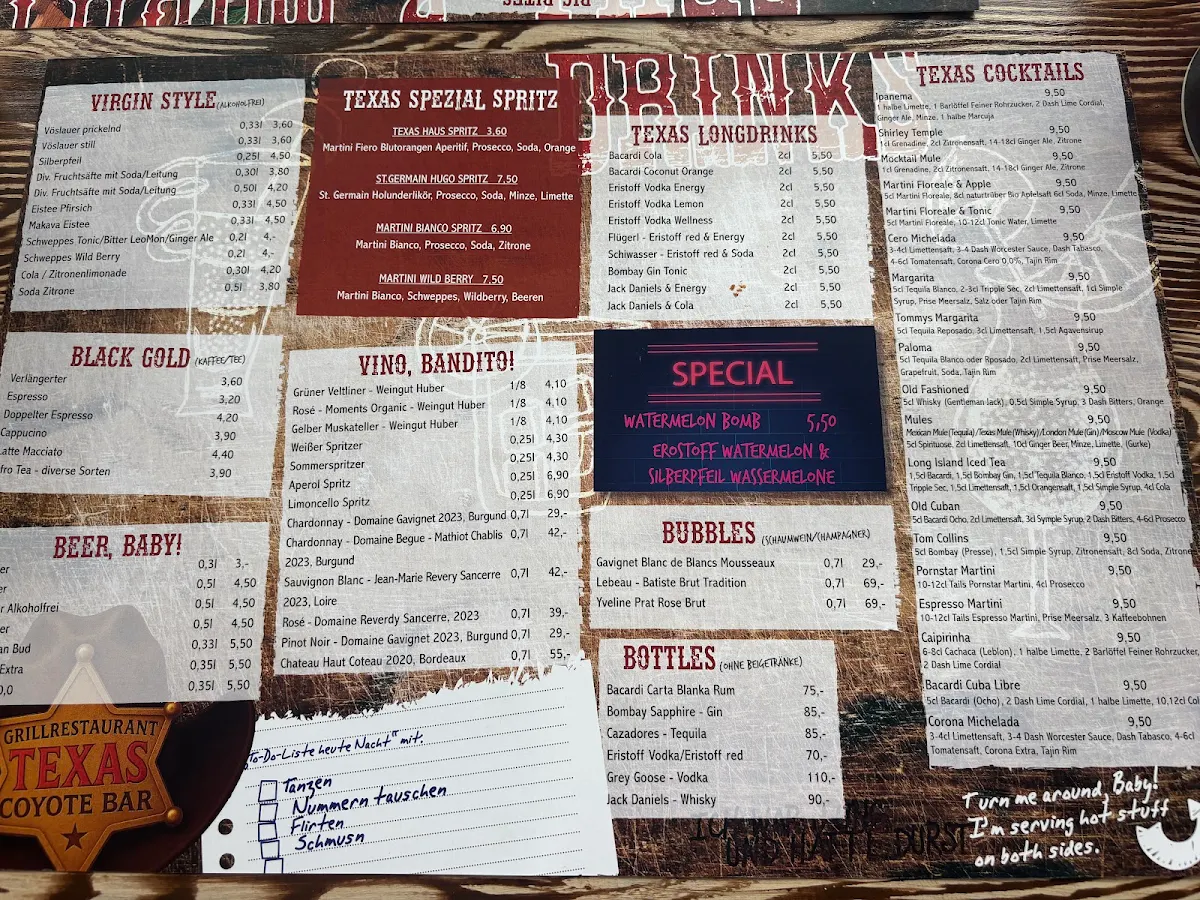 BIG BITES
DRINKS
VIRGIN STYLE (ALKOHOLFREI)
Vöslauer prickelnd 0,33l 3,60
Vöslauer still 0,33l 3,60
Silberpfeil 0,25l 4,50
Div. Fruchtsäfte mit Soda/Leitung 0,30l 3,80
Div. Fruchtsäfte mit Soda/Leitung 0,50l 4,20
Eistee Pfirsich 0,33l 4,50
Makava Eistee 0,33l 4,50
Schweppes Tonic/Bitter LeoMon/Ginger Ale 0,2l 4,-
Schweppes Wild Berry 0,2l 4,-
Cola / Zitronenlimonade 0,30l 4,20
Soda Zitrone 0,5l 3,80
BLACK GOLD (KAFFEE/TEE)
Verlängerter 3,60
Espresso 3,20
Doppelter Espresso 4,20
Cappucino 3,90
Latte Macciato 4,40
fro Tea - diverse Sorten 3,90
BEER, BABY!
er 0,3l 3,-
0,5l 4,50
r Alkoholfrei 0,5l 4,50
er 0,5l 4,50
an Bud 0,33l 5,50
Extra 0,35l 5,50
0,0 0,35l 5,50
GRILLRESTAURANT
TEXAS
COYOTE BAR
TEXAS SPEZIAL SPRITZ
TEXAS HAUS SPRITZ 3.60
Martini Fiero Blutorangen Aperitif, Prosecco, Soda, Orange
ST.GERMAIN HUGO SPRITZ 7.50
St. Germain Holunderlikör, Prosecco, Soda, Minze, Limette
MARTINI BIANCO SPRITZ 6.90
Martini Bianco, Prosecco, Soda, Zitrone
MARTINI WILD BERRY 7.50
Martini Bianco, Schweppes, Wildberry, Beeren
VINO, BANDITO!
Grüner Veltliner - Weingut Huber 1/8 4,10
Rosé - Moments Organic - Weingut Huber 1/8 4,10
Gelber Muskateller - Weingut Huber 1/8 4,10
Weißer Spritzer 0,25l 4,30
Sommerspritzer 0,25l 4,30
Aperol Spritz 0,25l 6,90
Limoncello Spritz 0,25l 6,90
Chardonnay - Domaine Gavignet 2023, Burgund 0,7l 29,-
Chardonnay - Domaine Begue - Mathiot Chablis 0,7l 42,-
2023, Burgund
Sauvignon Blanc - Jean-Marie Revery Sancerre 0,7l 42,-
2023, Loire
Rosé - Domaine Reverdy Sancerre, 2023 0,7l 39,-
Pinot Noir - Domaine Gavignet 2023, Burgund 0,7l 29,-
Chateau Haut Coteau 2020, Bordeaux 0,7l 55,-
"To-Do-Liste heute Nacht" mit:
Tanzen
Nummern tauschen
Flirten
Schmusn
TEXAS LONGDRINKS
Bacardi Cola 2cl 5,50
Bacardi Coconut Orange 2cl 5,50
Eristoff Vodka Energy 2cl 5,50
Eristoff Vodka Lemon 2cl 5,50
Eristoff Vodka Wellness 2cl 5,50
Flügerl - Eristoff red & Energy 2cl 5,50
Schiwasser - Eristoff red & Soda 2cl 5,50
Bombay Gin Tonic 2cl 5,50
Jack Daniels & Energy 2cl 5,50
Jack Daniels & Cola 2cl 5,50
SPECIAL
WATERMELON BOMB 5,50
EROSTOFF WATERMELON &
SILBERPFEIL WASSERMELONE
BUBBLES (SCHAUMWEIN/CHAMPAGNER)
Gavignet Blanc de Blancs Mousseaux 0,7l 29,-
Lebeau - Batiste Brut Tradition 0,7l 69,-
Yveline Prat Rose Brut 0,7l 69,-
BOTTLES (OHNE BEIGETRÄNKE)
Bacardi Carta Blanka Rum 75,-
Bombay Sapphire - Gin 85,-
Cazadores - Tequila 85,-
Eristoff Vodka/Eristoff red 70,-
Grey Goose - Vodka 110,-
Jack Daniels - Whisky 90,-
UND HATTE DURST
TEXAS COCKTAILS
Ipanema 9,50
1 halbe Limette, 1 Barlöffel Feiner Rohrzucker, 2 Dash Lime Cordial,
Ginger Ale, Minze, 1 halbe Marcuja
Shirley Temple 9,50
1cl Grenadine, 2cl Zitronensaft, 14-18cl Ginger Ale, Zitrone
Mocktail Mule 9,50
1cl Grenadine, 2cl Zitronensaft, 14-18cl Ginger Ale, Zitrone
Martini Floreale & Apple 9,50
5cl Martini Floreale, 8cl naturtrüber Bio Apfelsaft 6cl Soda, Minze, Limette
Martini Floreale & Tonic 9,50
5cl Martini Floreale, 10-12cl Tonic Water, Limette
Cero Michelada 9,50
3-4cl Limettensaft, 3-4 Dash Worcester Sauce, Dash Tabasco,
4-6cl Tomatensaft, Corona Cero 0,0%, Tajin Rim
Margarita 9,50
5cl Tequila Blanco, 2-3cl Tripple Sec, 2cl Limettensaft, 1cl Simple
Syrup, Prise Meersalz, Salz oder Tajin Rim
Tommys Margarita 9,50
5cl Tequila Reposado, 3cl Limettensaft, 1,5cl Agavensirup
Paloma 9,50
5cl Tequila Blanco oder Rposado, 2cl Limettensaft, Prise Meersalz,
Grapefruit, Soda, Tajin Rim
Old Fashioned 9,50
5cl Whisky (Gentleman Jack), 0,5cl Simple Syrup, 3 Dash Bitters, Orange
Mules 9,50
Mexican Mule (Tequila)/Texas Mule (Whisky)/London Mule (Gin)/Moscow Mule (Vodka)
5cl Spirituose, 2cl Limettensaft, 10cl Ginger Beer, Minze, Limette, (Gurke)
Long Island Iced Tea 9,50
1,5cl Bacardi, 1,5cl Bombay Gin, 1,5cl Tequila Blanco, 1,5cl Eristoff Vodka, 1,5cl
Tripple Sec, 1,5cl Limettensaft, 1,5cl Orangensaft, 1,5cl Simple Syrup, 4cl Cola
Old Cuban 9,50
5cl Bacardi Ocho, 2cl Limettensaft, 3cl Symple Syrup, 2 Dash Bitters, 4-6cl Prosecco
Tom Collins 9,50
5cl Bombay (Presse), 1,5cl Simple Syrup, Zitronensaft, 8cl Soda, Zitrone
Pornstar Martini 9,50
10-12cl Tails Pornstar Martini, 4cl Prosecco
Espresso Martini 9,50
10-12cl Tails Espresso Martini, Prise Meersalz, 3 Kaffeebohnen
Caipirinha 9,50
6-8cl Cachaca (Leblon), 1 halbe Limette, 2 Barlöffel Feiner Rohrzucker,
2 Dash Lime Cordial
Bacardi Cuba Libre 9,50
5cl Bacardi (Ocho), 2 Dash Lime Cordial, 1 halbe Limette, 10.12cl Col
Corona Michelada 9,50
3-4cl Limettensaft, 3-4 Dash Worcester Sauce, Dash Tabasco, 4-6cl
Tomatensaft, Corona Extra, Tajin Rim
Turn me around, Baby!
I'm serving hot stuff
on both sides.